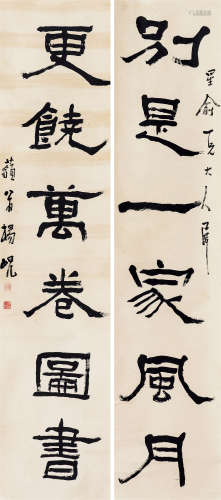 別是一家風月
星俞一兄大人屬
更饒萬卷圖書
藐翁楊峴